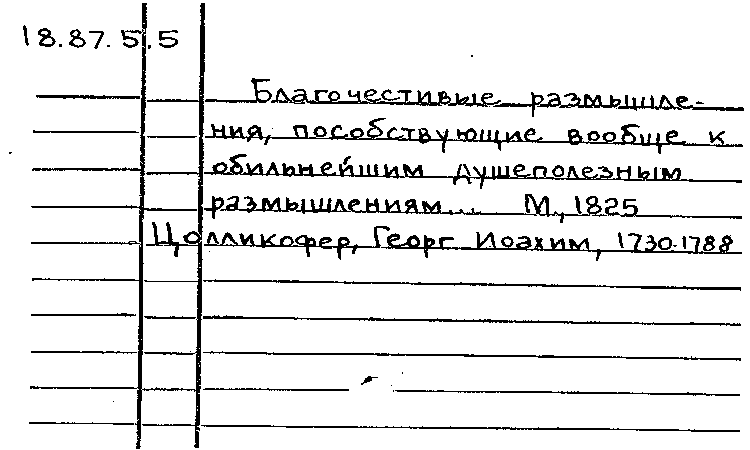 18.87.5.5
Благочестивые размышле-
ния, пособствующие вообще к
обильнейшим душеполезным
размышлениям... М., 1825
Цолликофер, Георг Иоахим, 1730-1788